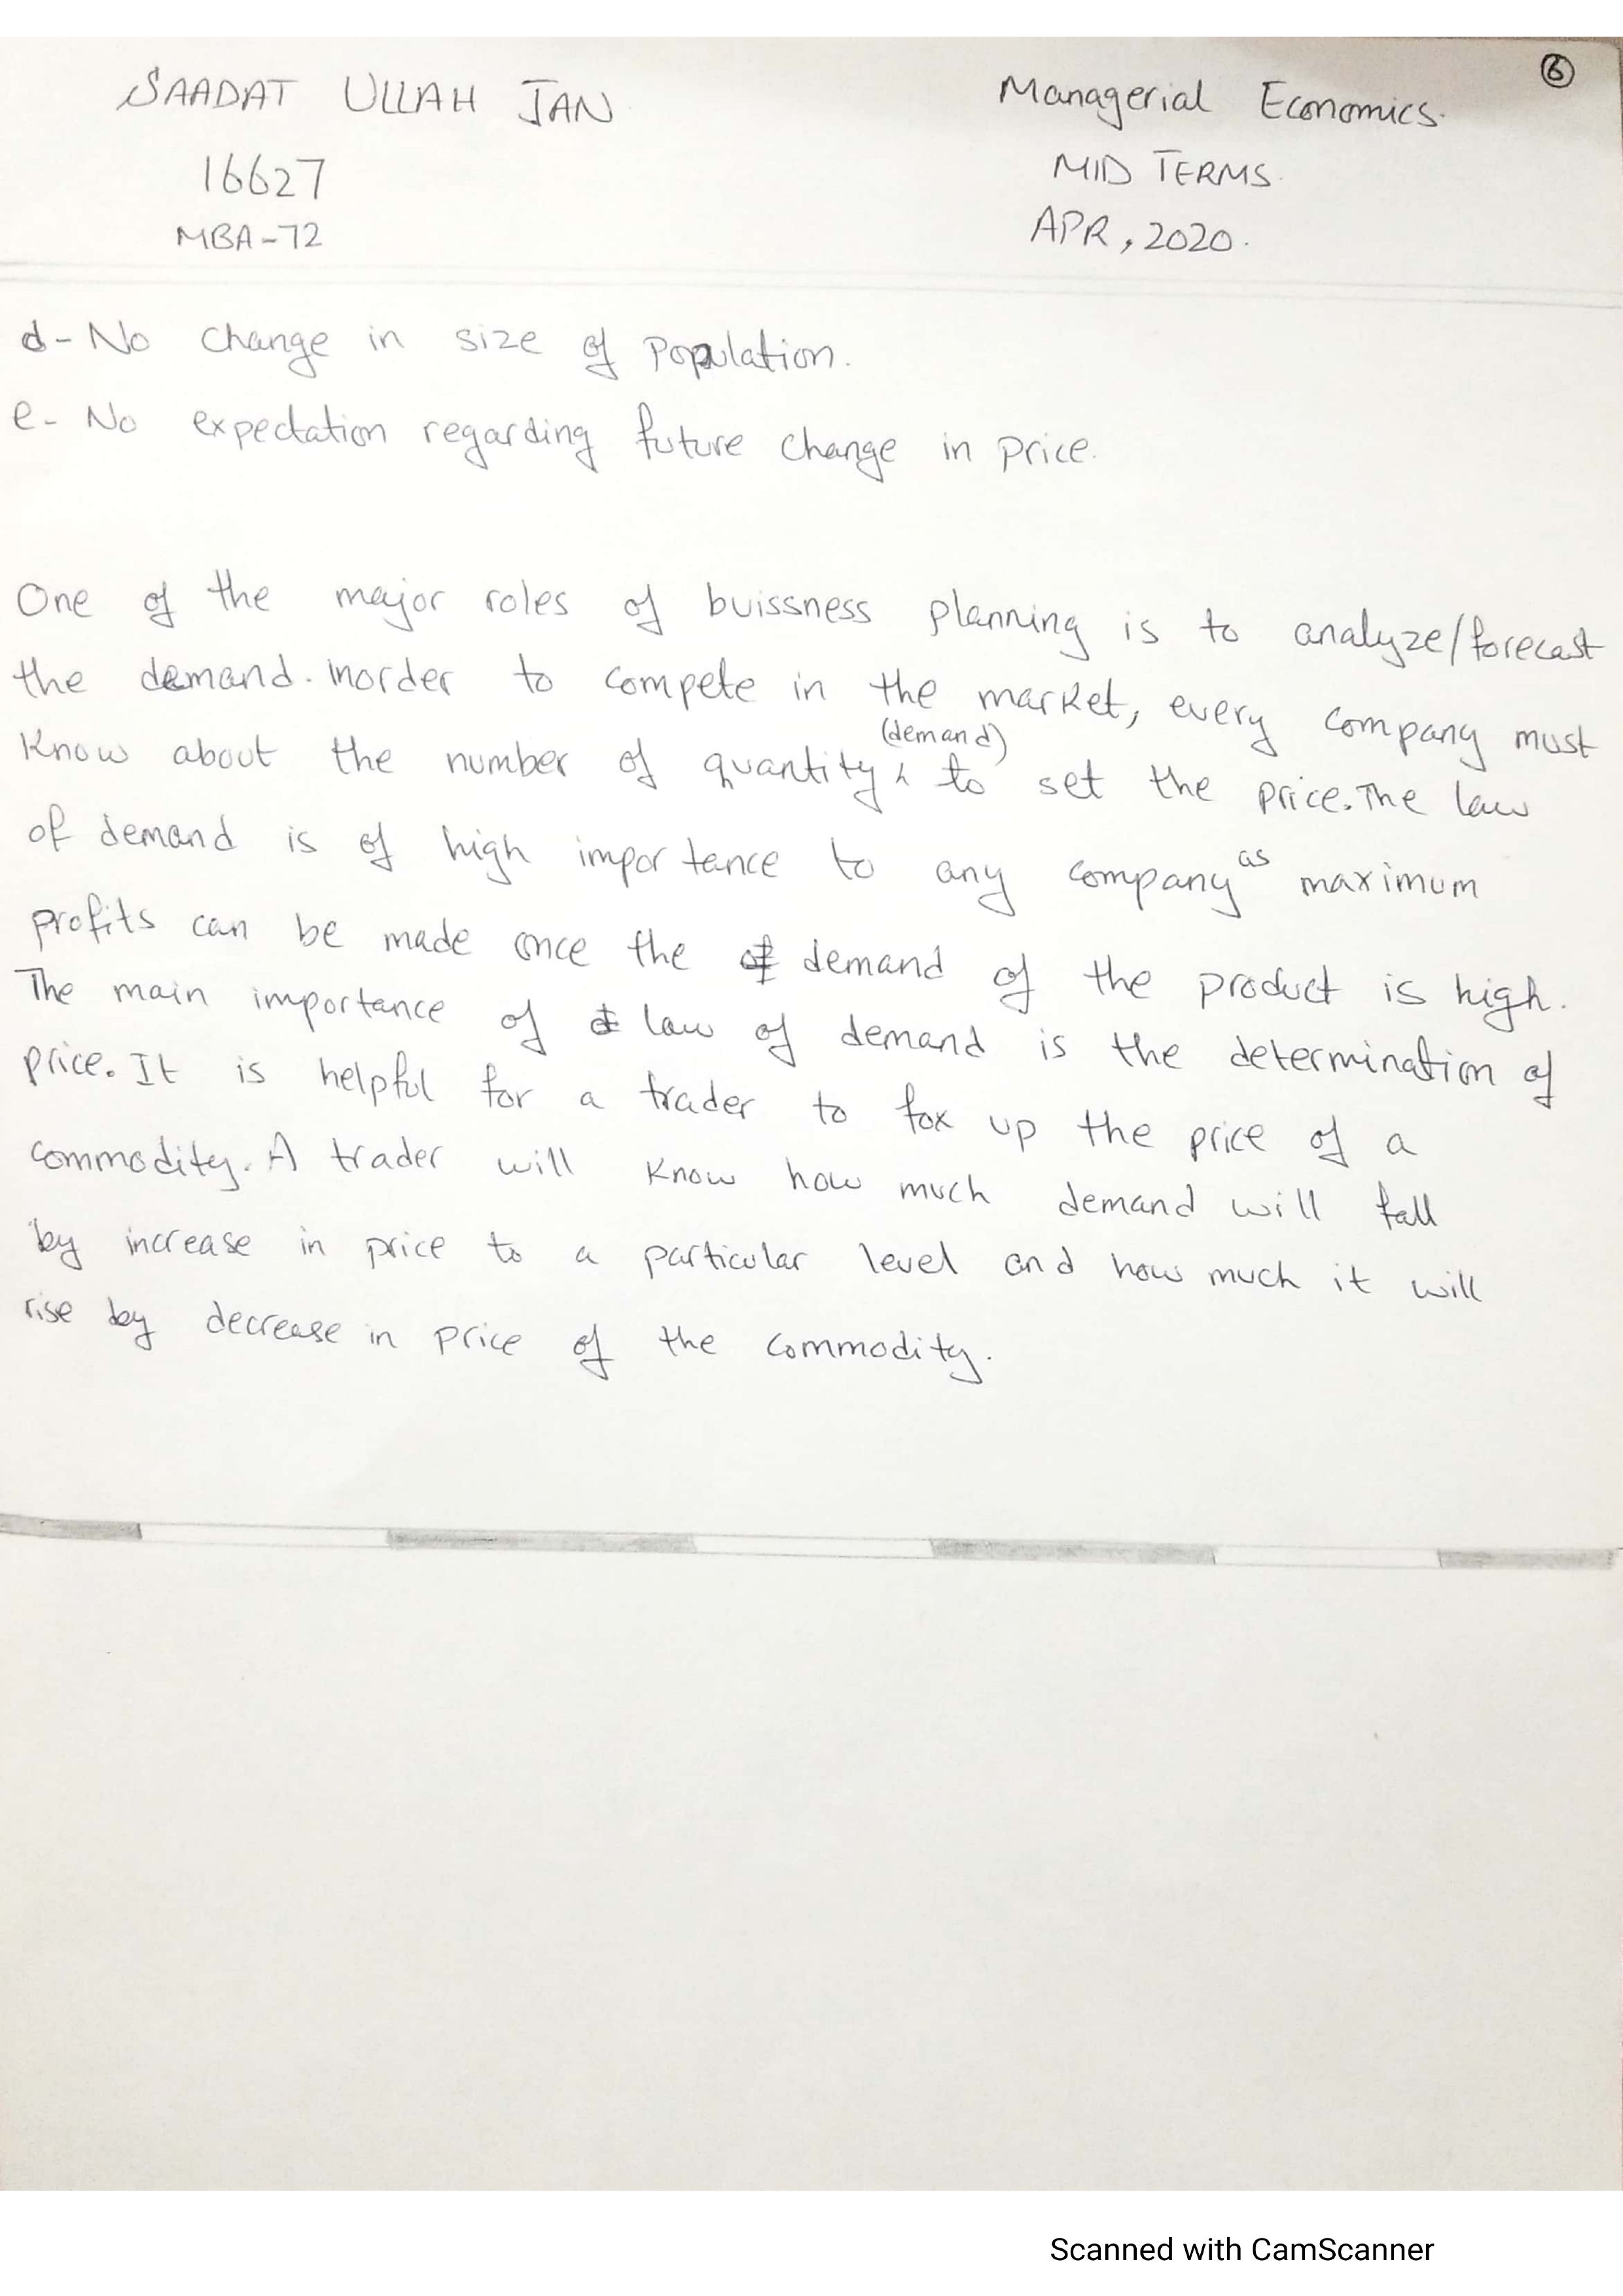 6
SAADAT ULLAH JAN
Managerial Economics.
16627
MID TERMS.
MBA-72
APR, 2020.
d- No change in size of Population.
e- No expectation regarding future change in price.
One of the major roles of buissness planning is to analyze/forecast
the demand. inorder to compete in the market, every company must
Know about the number of quantity (demand) to set the price. The law
of demand is of high importance to any company as maximum
profits can be made once the demand of the product is high.
The main importance of law of demand is the determination of
price. It is helpful for a trader to fox up the price of a
commodity. A trader will know how much demand will fall
by increase in price to a particular level and how much it will
rise by decrease in price of the commodity.
Scanned with CamScanner